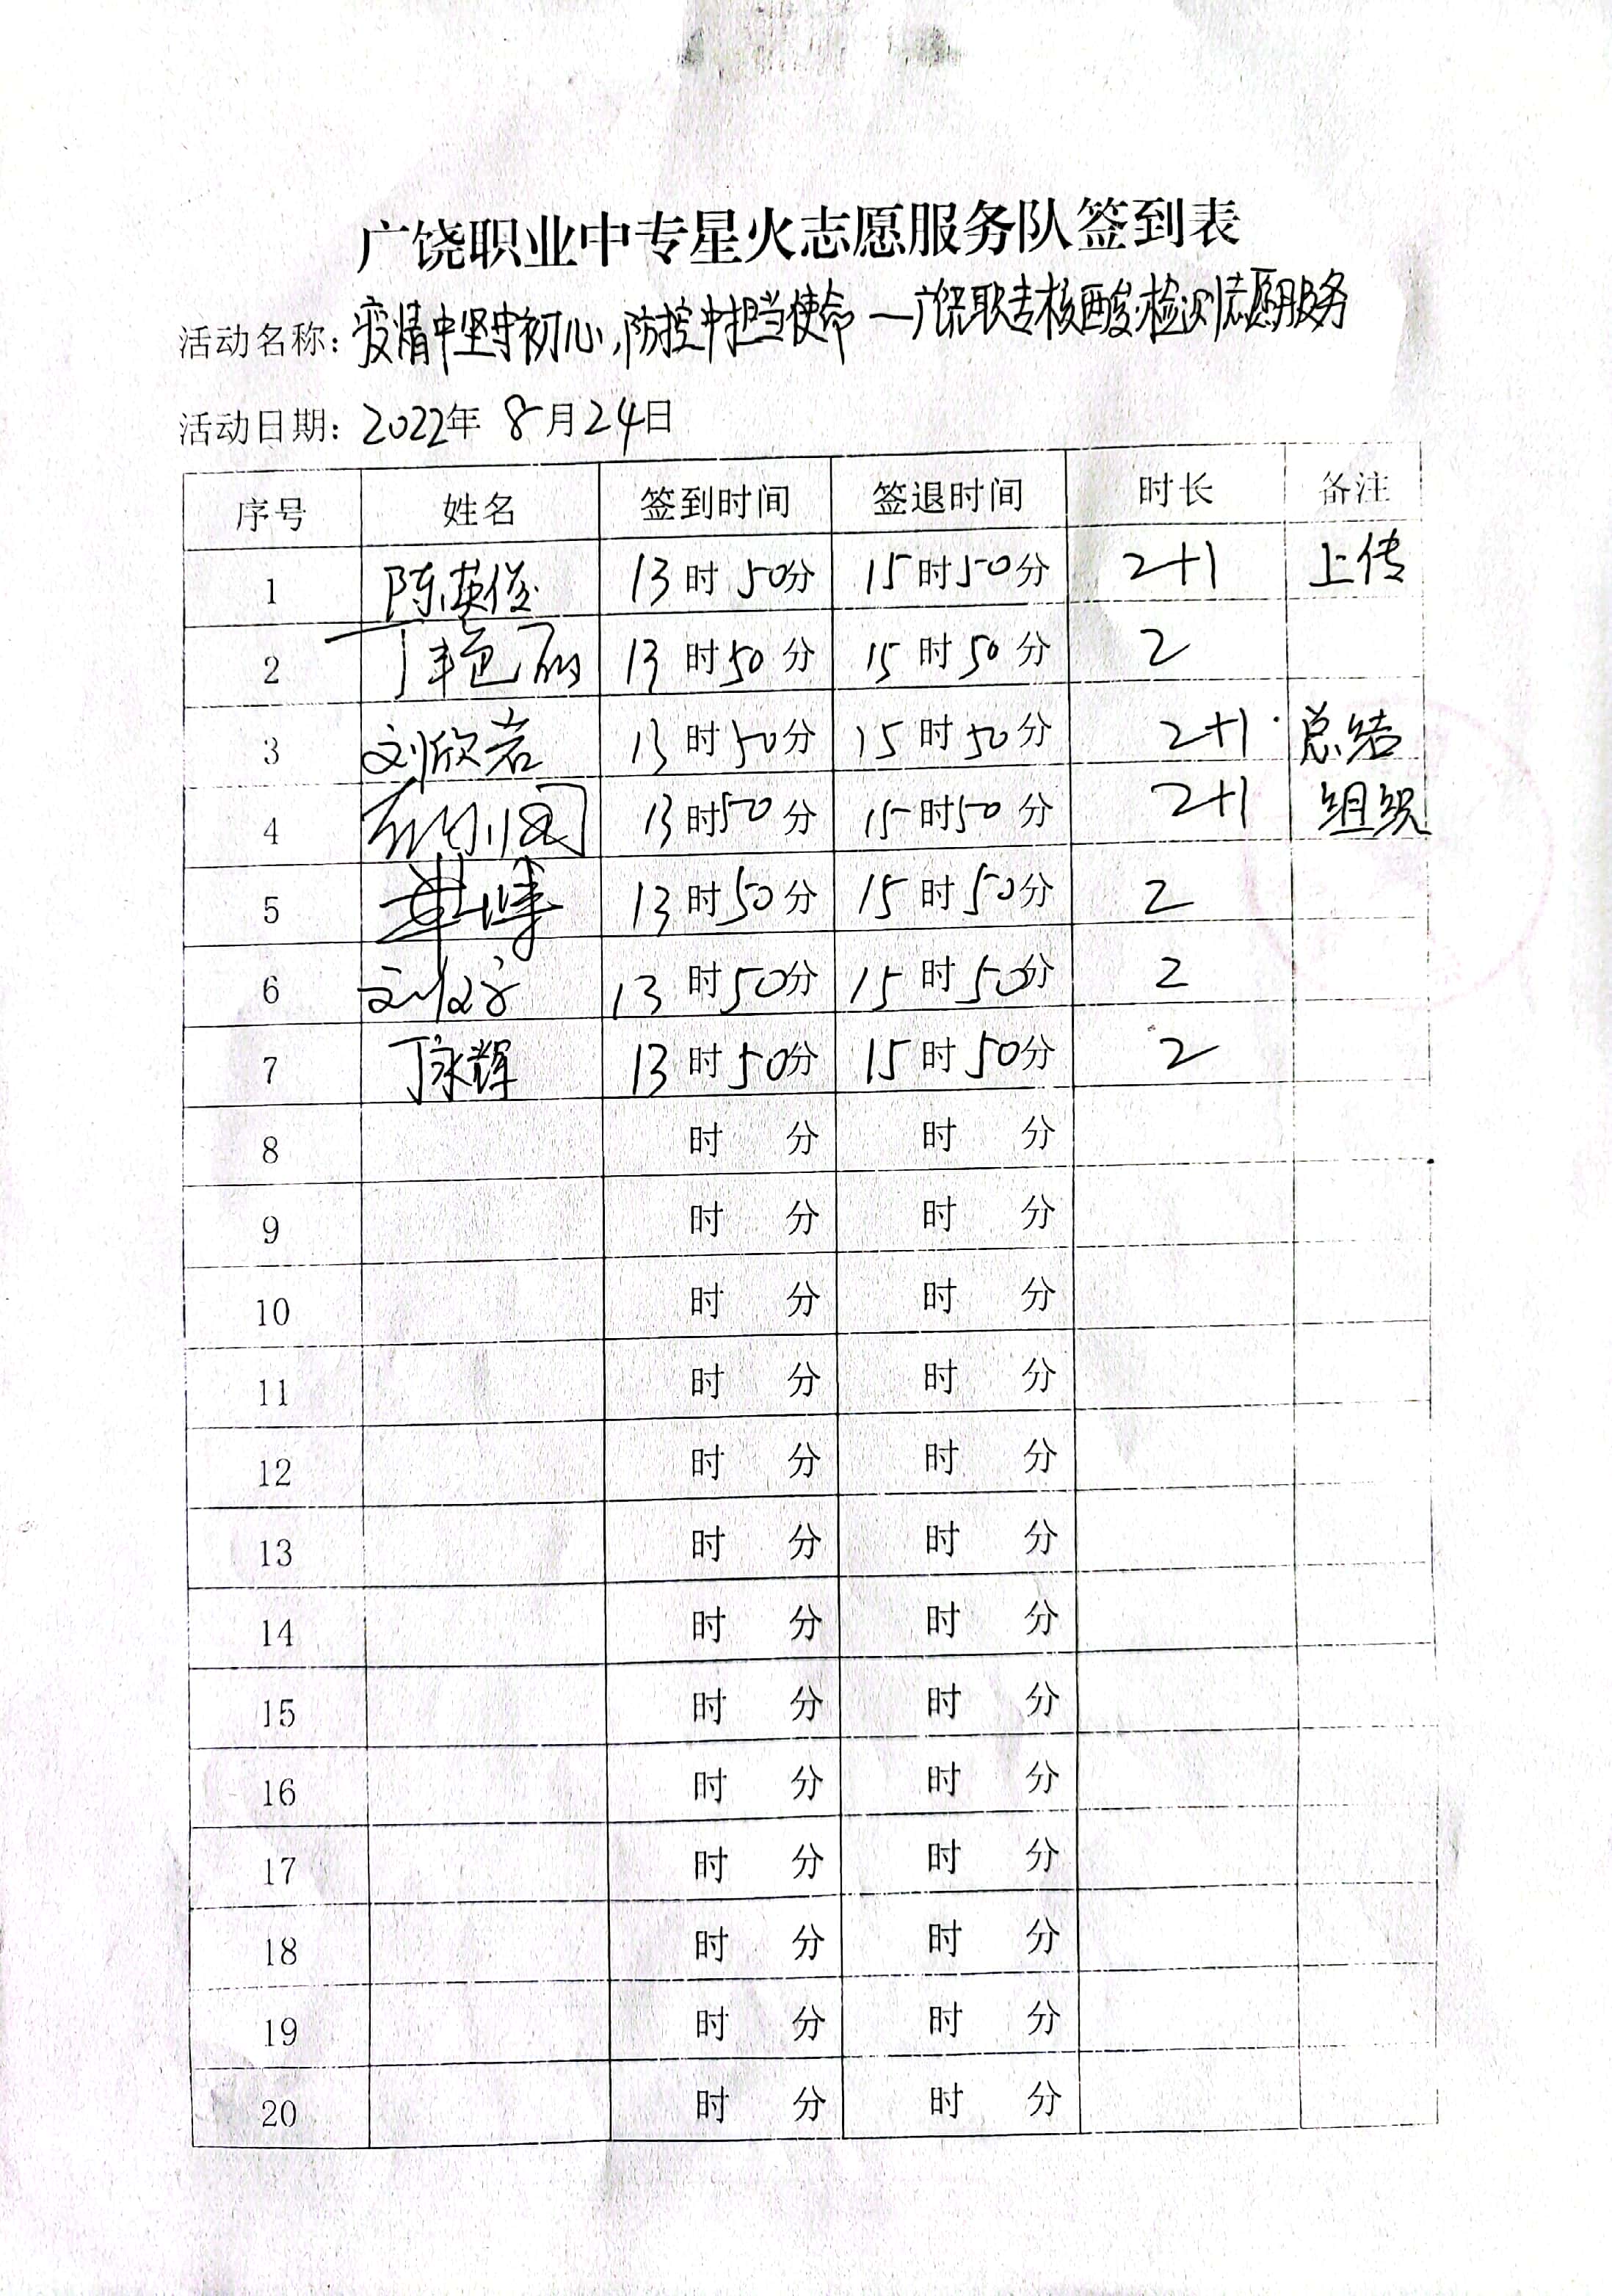 广饶职业中专星火志愿服务队签到表
活动名称：疫情中坚守初心，防控中担当使命—广饶职专核酸检测志愿服务
活动日期：2022年 8月24日
序号 姓名 签到时间 签退时间 时长 备注
1 陈英俊 13时50分 15时50分 2+1 上传
2 丁艳丽 13时50分 15时50分 2
3 刘欣若 13时50分 15时50分 2+1 总结
4 13时50分 15时50分 2+1 组织
5 13时50分 15时50分 2
6 刘 13时50分 15时50分 2
7 丁永辉 13时50分 15时50分 2
8 时 分 时 分
9 时 分 时 分
10 时 分 时 分
11 时 分 时 分
12 时 分 时 分
13 时 分 时 分
14 时 分 时 分
15 时 分 时 分
16 时 分 时 分
17 时 分 时 分
18 时 分 时 分
19 时 分 时 分
20 时 分 时 分